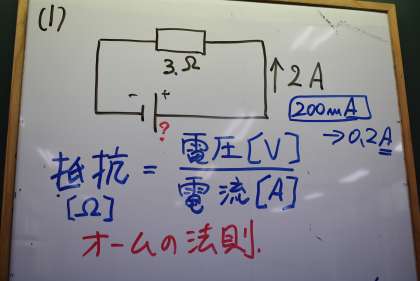 (1)
3.Ω
↑2A
- +
?
200mA
→0.2A
抵抗 = 電圧[V]
電流[A]
[Ω]
オームの法則.